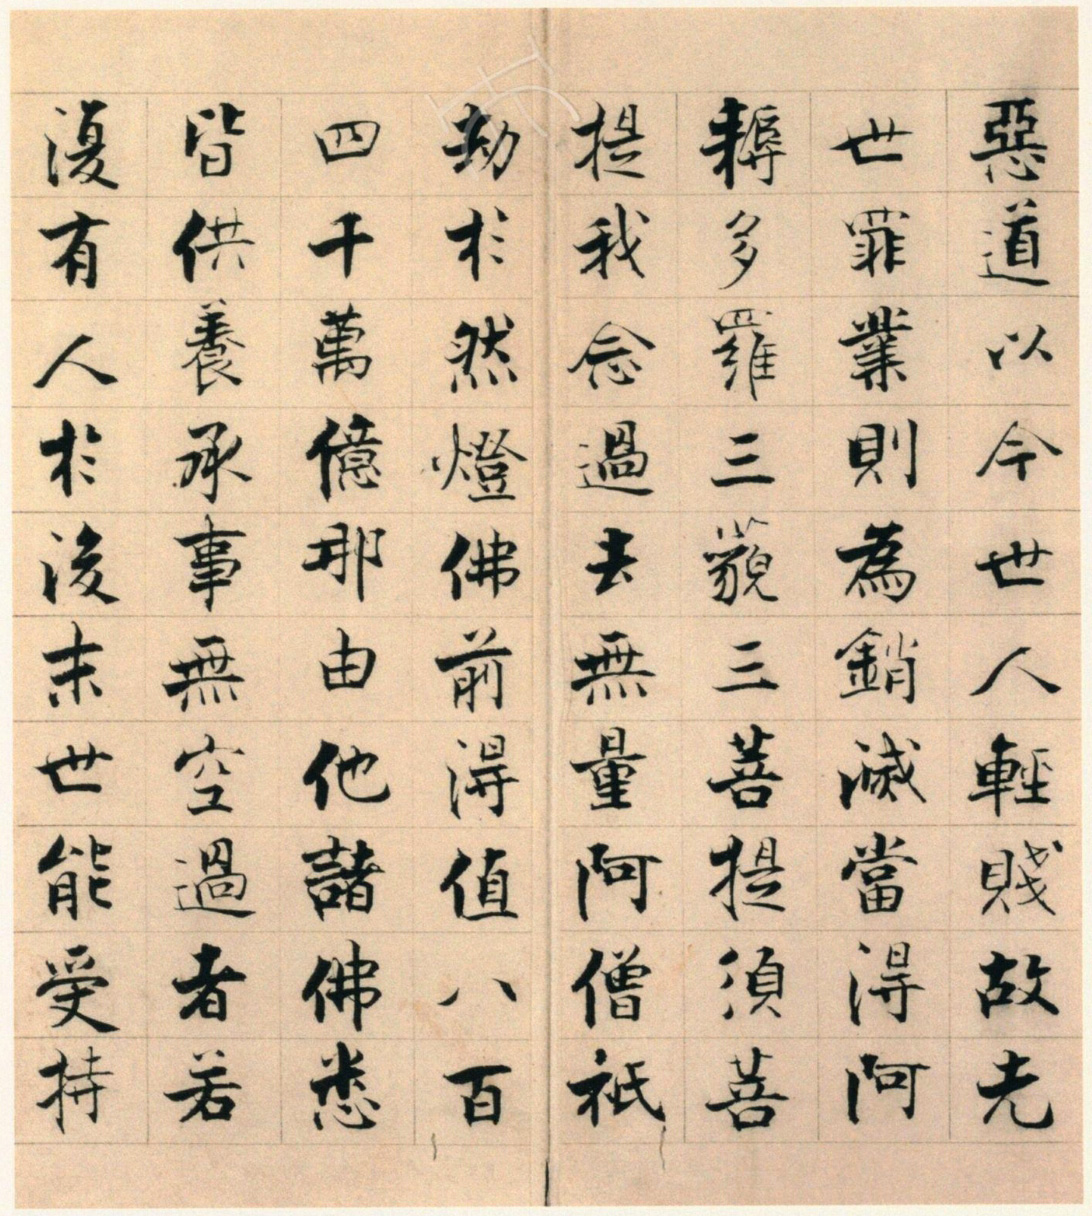 惡道以今世人輕賤故先
世罪業則為銷滅當得阿
耨多羅三藐三菩提須菩
提我念過去無量阿僧祇
劫於然燈佛前得值八百
四千萬億那由他諸佛悉
皆供養承事無空過者若
復有人於後末世能受持